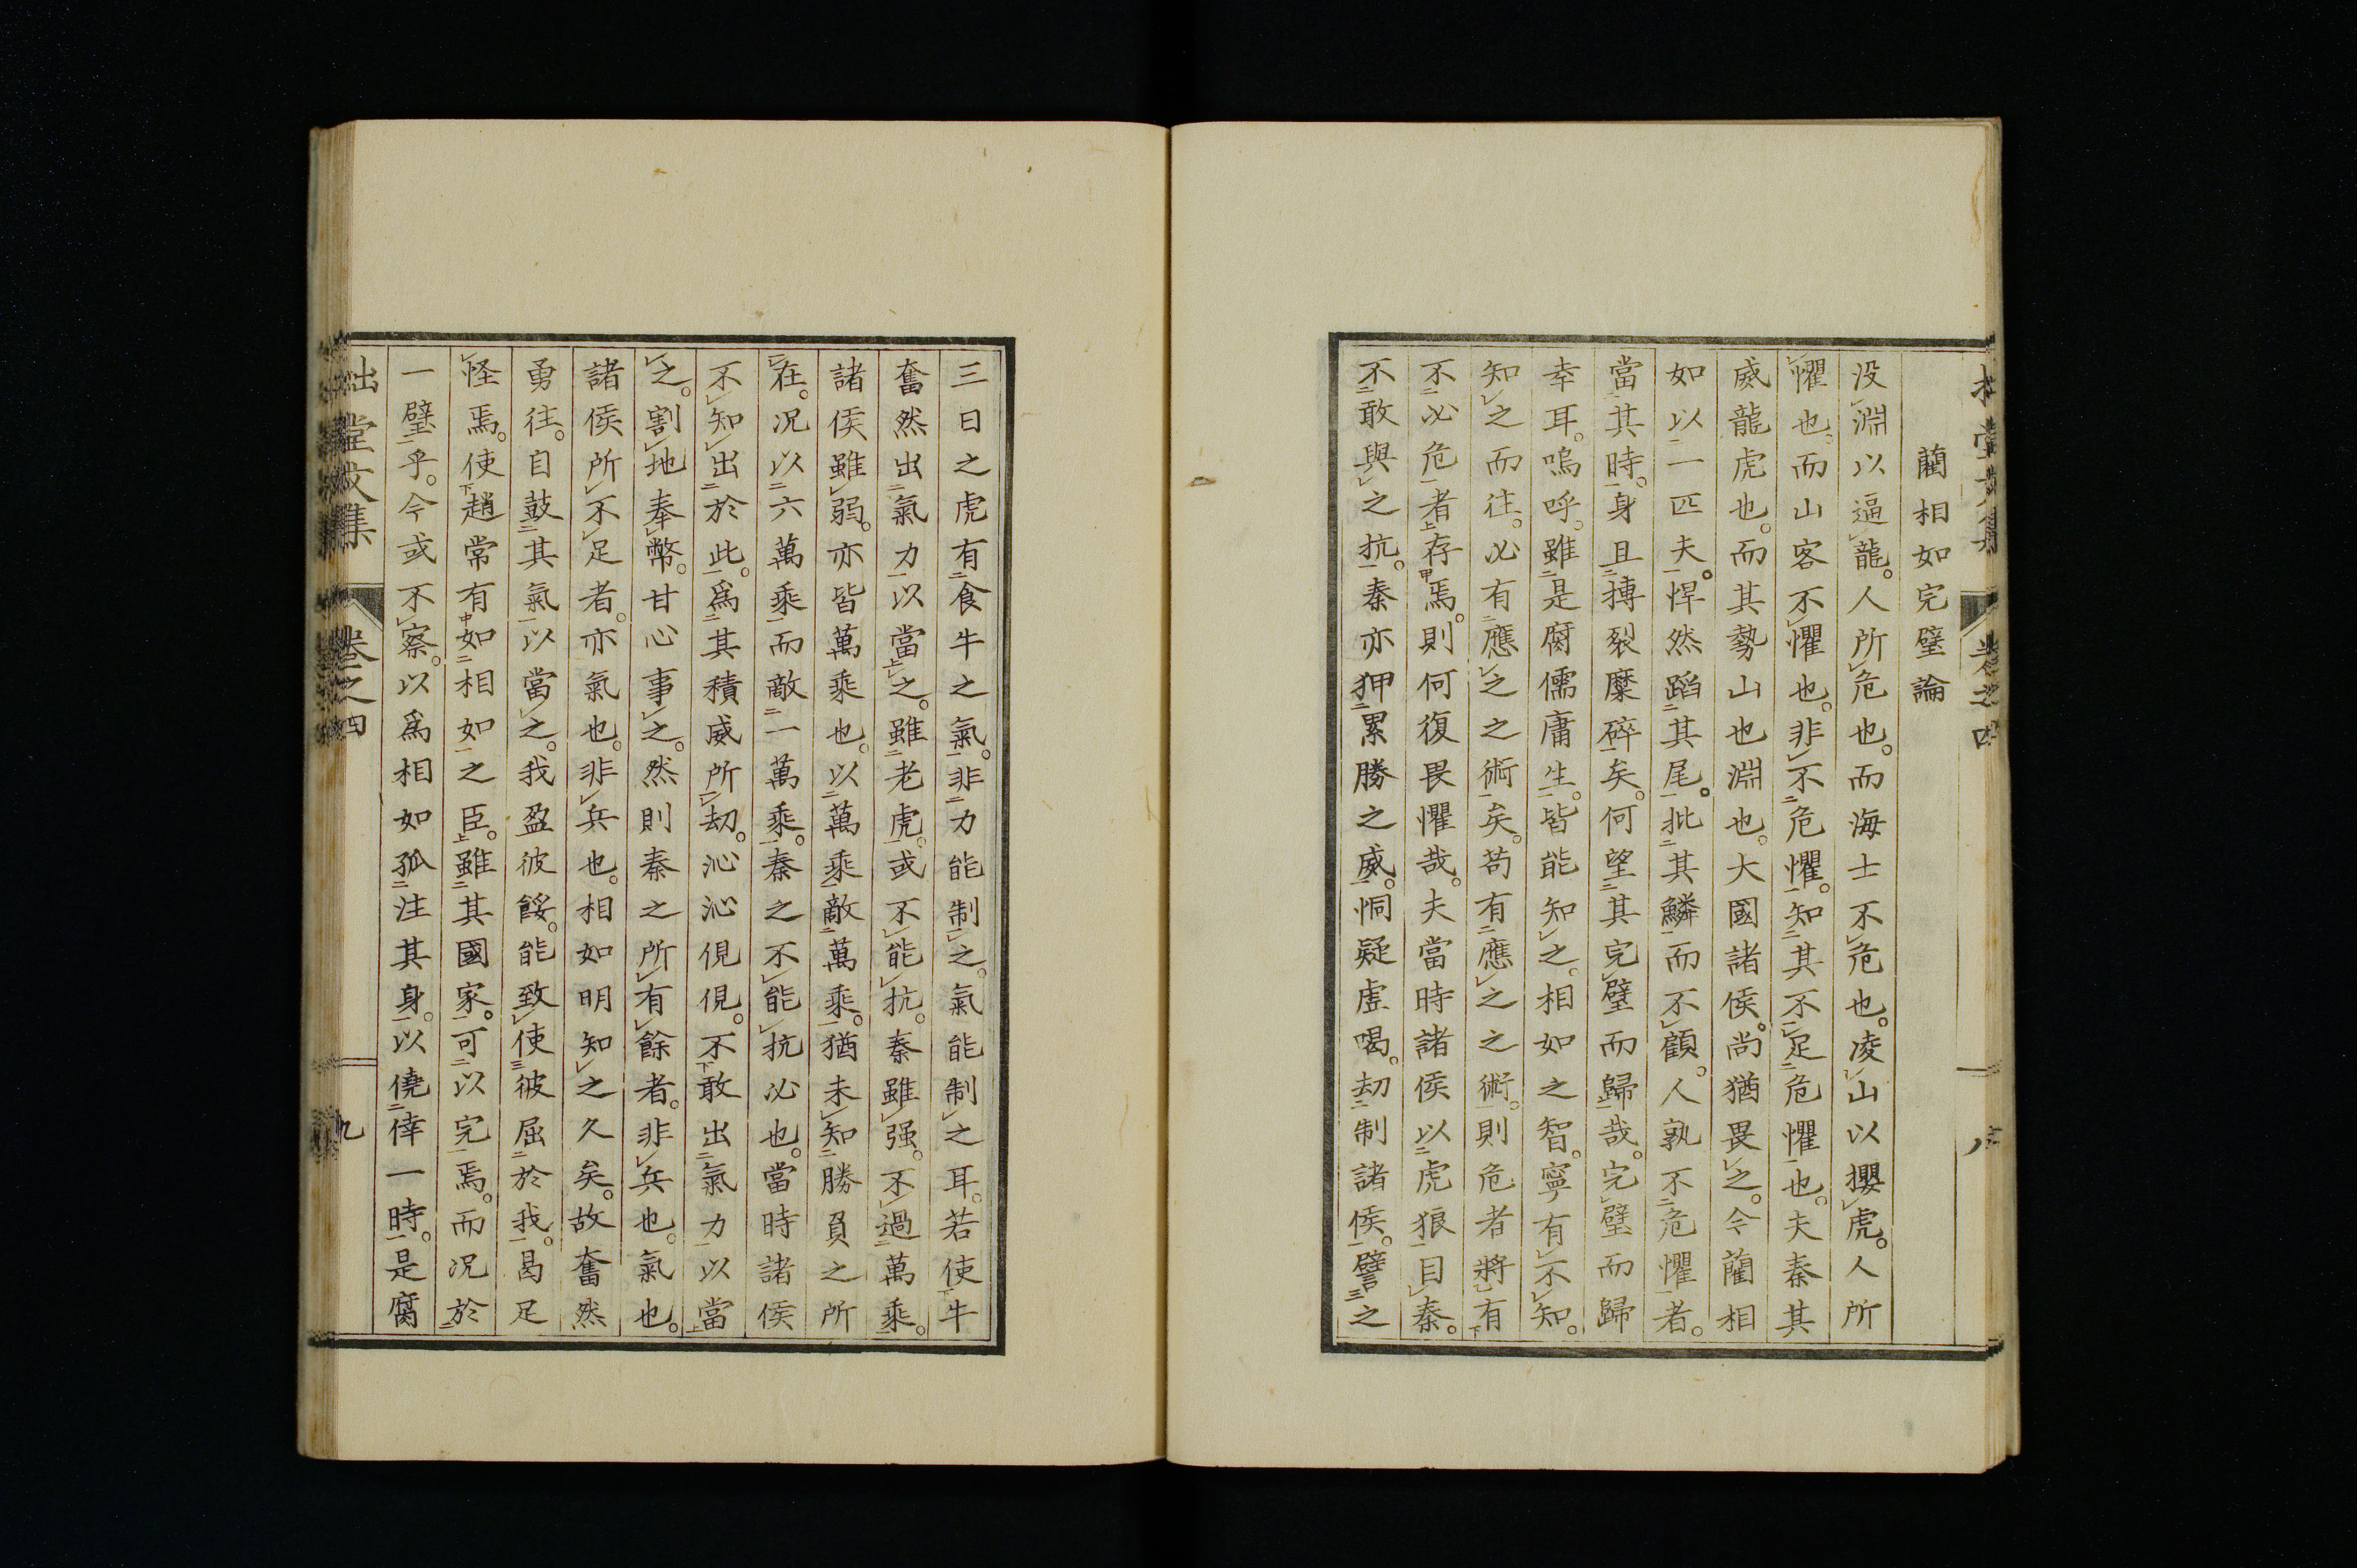 藺相如完璧論
没淵以逼龍。人所危也。而海士不危也。凌山以攖虎。人所
懼也。而山客不懼也。非不危懼。知其不足危懼也。夫秦其
威龍虎也。而其勢山也淵也。大國諸侯。尚猶畏之。今藺相
如以一匹夫。悍然蹈其尾。批其鱗而不顧。人孰不危懼者。
當其時。身且摶裂糜碎矣。何望其完璧而歸哉。完璧而歸
幸耳。嗚呼。雖是腐儒庸生。皆能知之。相如之智。寧有不知。
知之而往。必有應之之術矣。苟有應之之術。則危者將有
不必危者存焉。則何復畏懼哉。夫當時諸侯以虎狼目秦。
不敢與之抗。秦亦狎累勝之威。恫疑虛喝。劫制諸侯。譬之
三日之虎有食牛之氣。非力能制之。氣能制之耳。若使牛
奮然出氣力以當之。雖老虎。或不能抗。秦雖强。不過萬乘。
諸侯雖弱。亦皆萬乘也。以萬乘敵萬乘。猶未知勝負之所
在。况以六萬乘而敵一萬乘。秦之不能抗必也。當時諸侯
不知出於此。爲其積威所劫。沁沁俔俔。不敢出氣力以當
之。割地奉幣。甘心事之。然則秦之所有餘者。非兵也。氣也。
諸侯所不足者。亦氣也。非兵也。相如明知之久矣。故奮然
勇往。自鼓其氣以當之。我盈彼餒。能致使彼屈於我。曷足
怪焉。使趙常有如相如之臣。雖其國家。可以完焉。而况於
一璧乎。今或不察。以爲相如孤注其身。以僥倖一時。是腐
拙堂文集 卷之四 九